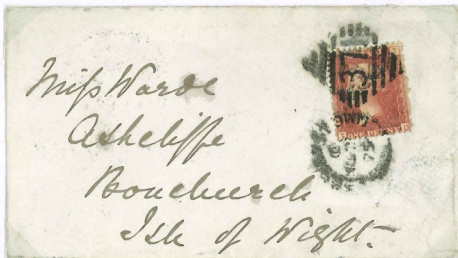 Miss Warde
Ashcliffe
Bonchurch
Isle of Wight
ONE PENNY